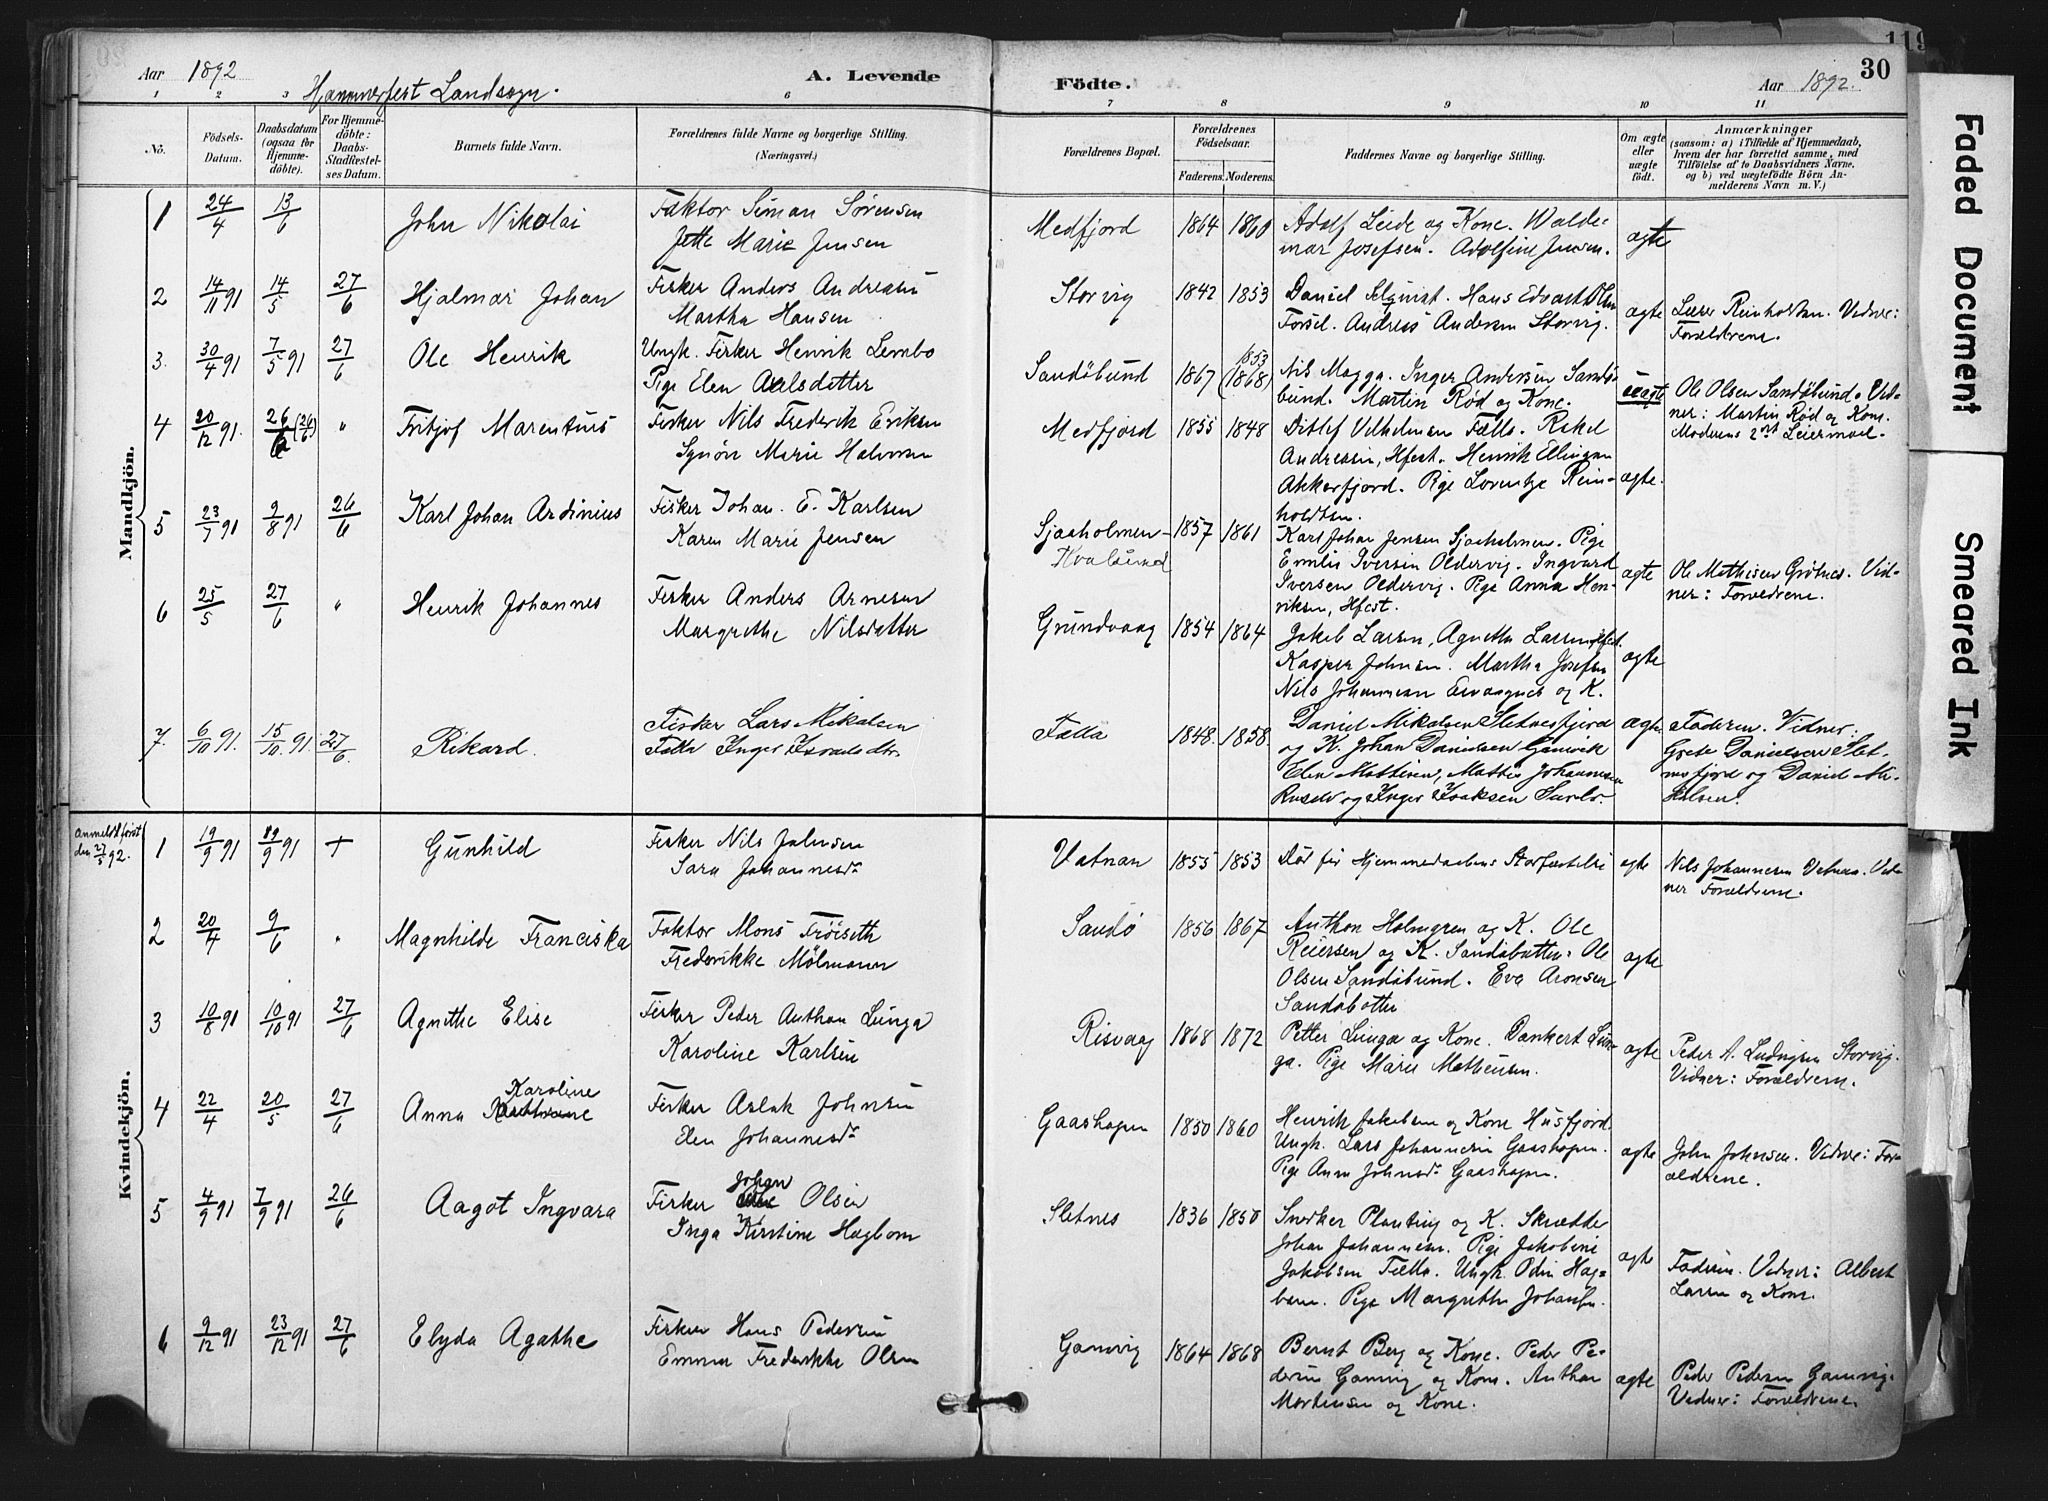 Aar 1892
Hammerfest Landsogn.
A. Levende
Födte.
Aar 1892.
30
119
1 2 3 6 7 8 9 10 11
Nô.
Födsels-Datum.
Daabsdatum (ogsaa for Hjemmedöbte).
For Hjemmedöbte: Daabs-Stadfæstelses Datum.
Barnets fulde Navn.
Forældrenes fulde Navne og borgerlige Stilling.
(Næringsvei.)
Forældrenes Bopæl.
Forældrenes Födselsaar.
Faderens. Moderens.
Faddernes Navne og borgerlige Stilling.
Om ægte eller uægte födt.
Anmærkninger
(saasom: a) i Tilfælde af Hjemmedaab,
hvem der har forrettet samme, med
Tilföielse af to Daabsvidners Navne.
og b) ved uægtefödte Börn Anmelderens Navn m. V.)
Mandkjön.
1 24/4 13/6 John Nikolai
Faktor Simon Sørensen
Jette Marie Jensen
Medfjord 1864 1860
Adolf Leide og Kone. Walde-
mar Josefsen. Adolfine Jensen.
ægte
2 14/11 91 14/5 27/6 Hjalmar Johan
Fisker Anders Andreasen
Martha Hansen
Storvig 1842 1853
Daniel Selqvist. Hans Edvart Olsen
Forsøl. Andreas Andersen Storvig.
ægte
Lærer Reinholdtsen. Vidner:
Forældrene.
3. 30/4 91 7/5 91 27/6 Ole Henrik
Ungk. Fisker Henrik Lembo
Pige Elen Axelsdatter
Sandöbund 1867 1853 (1868)
Nils Magga. Inger Andersen Sandö-
bund. Martin Röd og Kone.
uægte
Ole Olsen Sandöbund. Vid-
ner: Martin Röd og Kone.
Moderens 2det Leiermaal.
4 20/12 91. 26/6 (26/6) " Fritjof Marentius
Fisker Nils Frederik Eriksen
Synöv Marie Halvorsen
Medfjord 1855 1848
Ditlef Vilhelmsen Fætta. Rakel
Andreasen, Hfest. Henrik Ellingsen
Akkarfjord. Pige Lorentze Rein-
holdtsen.
ægte.
5 23/7 91 9/8 91 26/6 Karl Johan Ardinius
Fisker Johan. E. Karlsen
Karen Marie Jensen
Sjaaholmen -
Kvalsund
1857 1861
Karl Johan Jensen Sjaaholmen. Pige
Emilie Iversen Oldervig. Ingvard
Iversen Oldervig. Pige Anna Hen-
riksen, Hfest.
ægte
Ole Mathisen Grötnes. Vid-
ner: Forældrene.
6 25/5 27/6 " Henrik Johannes
Fisker Anders Arnesen
Margrethe Nilsdatter
Grundvaag 1854 1864
Jakob Larsen, Agnethe Larsen, Hfest.
Kasper Johnsen. Martha Josefsen
Nils Johannesen og K.
ægte
7. 6/10 91. 15/10 91. 27/6 Rikard.
Fisker Lars Mikalsen
Fætta Inger
Fætta 1848. 1858.
Daniel Mikalsen Sletnesfjord
og K. Johan Danielsen Gamvik
Elen Mattisen, Mattis Johannesen
og Inger Isaksen
ægte
Faderen. Vidner:
Grete Danielsen Slet-
nesfjord og Daniel Mi-
kalsen.
Kvindekjön.
Anmeldt först
den 27/5 92.
1 19/9 91 19/9 91 + Gunhild
Fisker Nils Johnsen
Sara Johannesdr
Vatnan 1855 1853
Död för Hjemmedaabens Stadfæstelse
ægte
Nils Johannesen Vatnan. Vid-
ner Forældrene.
2 20/4 9/6 " Magnhilde Franciska
Faktor Mons Fröiseth
Frederikke Mölmann
Sandö 1856 1867
Anthon Holmgren og K. Ole
Reiersen og K. Sandöbotten. Ole
Olsen Sandöbund. Eva Aronsen
Sandöbotten
ægte
3 10/8 91 10/10 91 27/6 Agnethe Elise
Fisker Peder Anthon Lunga
Karoline Karlsen
Risvaag 1868 1872
Petter Lunga og Kone. Dankert Lun-
ga. Pige Marie Matheusen.
ægte
Peder A. Ludvigsen Storvig.
Vidner: Forældrene.
4 22/4 20/5 27/6 Anna Karoline
Fisker Aslak Johnsen
Elen Johannesdr
Gaashopen 1850 1860
Henrik Jakobsen og Kone Husfjord.
Ungk. Lars Johannesen Gaashopen.
Pige Anna Johnsdr Gaashopen.
ægte
John Johnsen. Vidner: For-
ældrene.
5 4/9 91 7/9 91 26/6 Aagot Ingvara
Fisker Johan Olsen
Inga Kirstine Hagbom
Sletnes 1836 1850
Snedker Planting og K. Skrædder
Johan Johannesen. Pige Jakobine
Jakobsen Fætta. Ungk. Odin Hag-
bom. Pige Margrethe Johansen.
ægte
Faderen. Vidner: Albert
Larsen og Kone.
6 9/12 91 23/12 91 27/6 Elyda Agathe
Fisker Hans Pedersen
Emma Frederikke Olsen
Gamvig 1864 1868
Bernt Berg og Kone. Peder Pe-
dersen Gamvig og Kone. Anthon
Mortensen og Kone.
ægte
Peder Pedersen Gamvig.
Vidner: Forældrene.
Faded Document
Smeared Ink